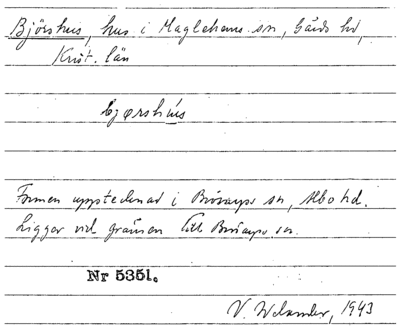 Björshus, hus i Maglehems sn, Gärds hd,
Krist. län
bjørshús
Formen upptecknad i Brösarps sn, Albo hd.
Ligger vid gränsen till Brösarps sn.
Nr 5351.
V. Welander, 1943